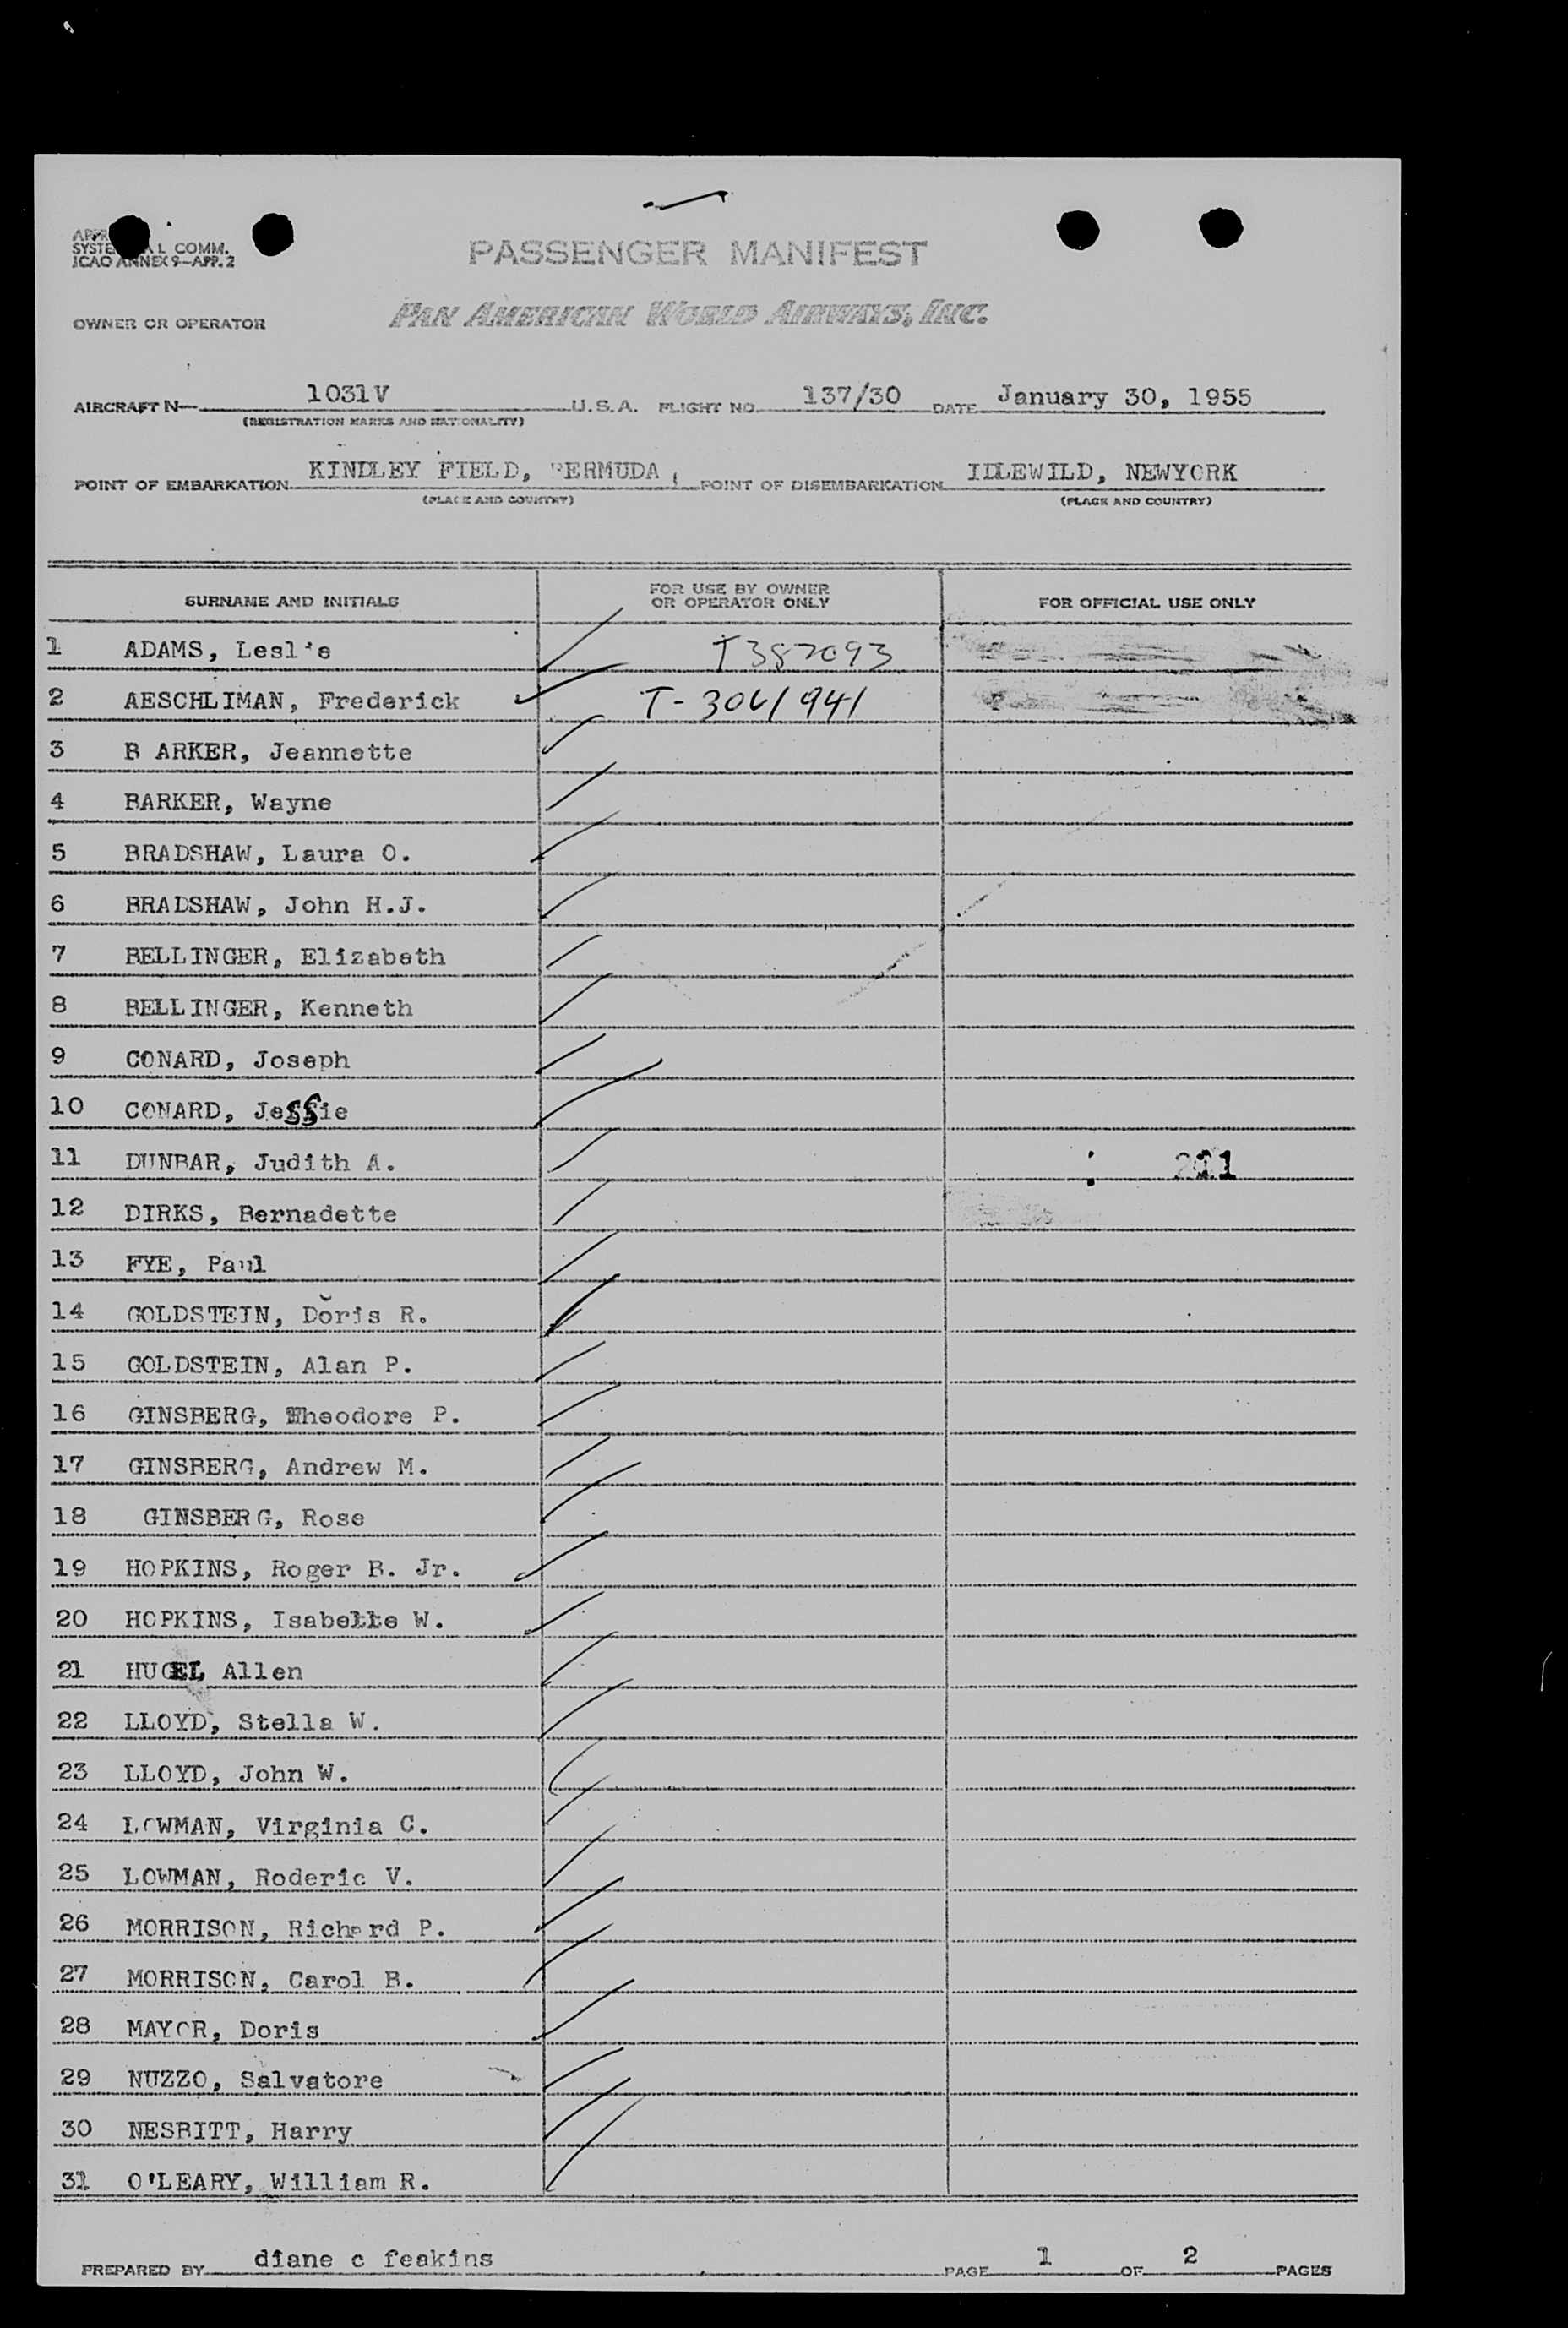 SYSTE L COMM.
ICAO ANNEX 9—APP. 2
PASSENGER MANIFEST
OWNER OR OPERATOR PAN AMERICAN WORLD AIRWAYS, INC.
AIRCRAFT N— 1031V U.S.A. FLIGHT NO. 137/30 DATE January 30, 1955
(REGISTRATION MARKS AND NATIONALITY)
POINT OF EMBARKATION KINDLEY FIELD, BERMUDA POINT OF DISEMBARKATION IDLEWILD, NEWYORK
(PLACE AND COUNTRY) (PLACE AND COUNTRY)
SURNAME AND INITIALS FOR USE BY OWNER OR OPERATOR ONLY FOR OFFICIAL USE ONLY
1 ADAMS, Leslie T387093
2 AESCHLIMAN, Frederick T-3061941
3 B ARKER, Jeannette
4 BARKER, Wayne
5 BRADSHAW, Laura O.
6 BRADSHAW, John H.J.
7 BELLINGER, Elizabeth
8 BELLINGER, Kenneth
9 CONARD, Joseph
10 CONARD, Jessie
11 DUNBAR, Judith A.
12 DIRKS, Bernadette
13 FYE, Paul
14 GOLDSTEIN, Doris R.
15 GOLDSTEIN, Alan P.
16 GINSBERG, Theodore P.
17 GINSBERG, Andrew M.
18 GINSBERG, Rose
19 HOPKINS, Roger B. Jr.
20 HOPKINS, Isabelle W.
21 HUGEL Allen
22 LLOYD, Stella W.
23 LLOYD, John W.
24 LOWMAN, Virginia C.
25 LOWMAN, Roderic V.
26 MORRISON, Richard P.
27 MORRISON, Carol B.
28 MAYOR, Doris
29 NUZZO, Salvatore
30 NESBITT, Harry
31 O'LEARY, William R.
PREPARED BY diane c feakins PAGE 1 OF 2 PAGES